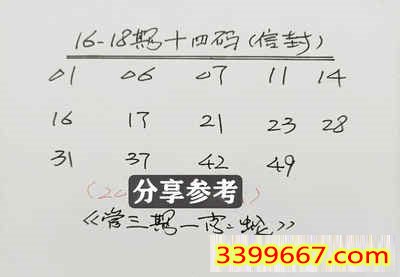 16-18期十四码(信封)
01 06 07 11 14
16 17 21 23 28
31 37 42 49
(20
分享参考
)
《 三期一 》
3399667.com